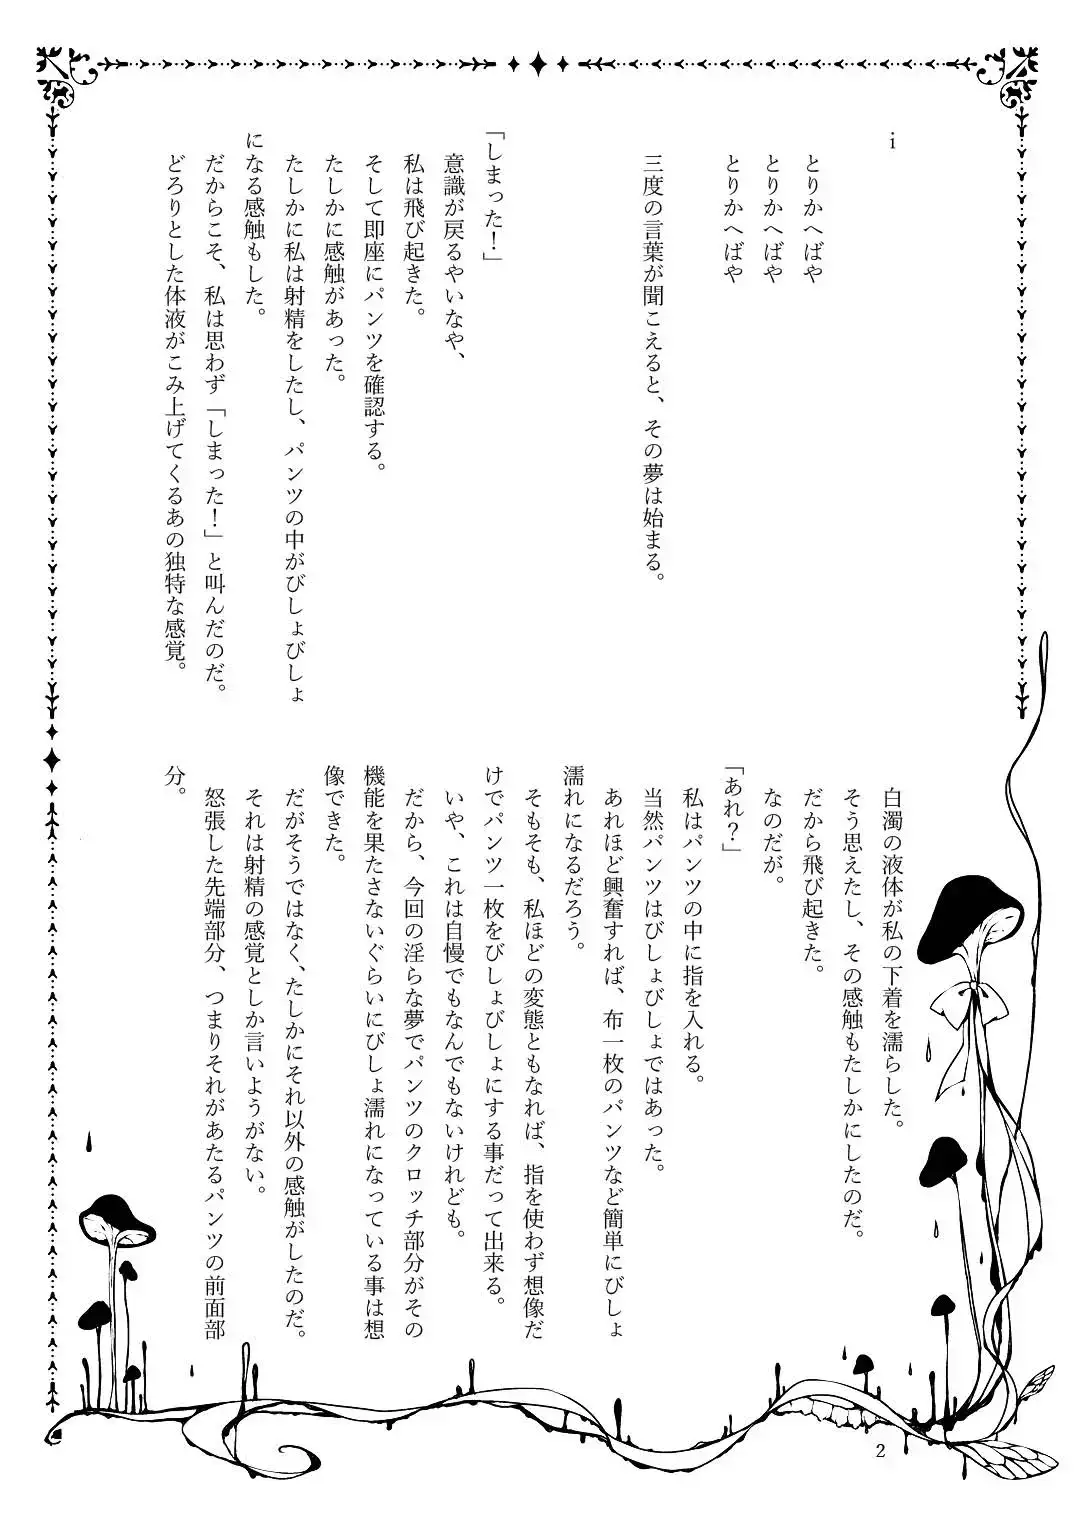 i
とりかへばや
とりかへばや
とりかへばや
三度の言葉が聞こえると、その夢は始まる。
「しまった！」
意識が戻るやいなや、
私は飛び起きた。
そして即座にパンツを確認する。
たしかに感触があった。
たしかに私は射精をしたし、パンツの中がびしょびしょ
になる感触もした。
だからこそ、私は思わず「しまった！」と叫んだのだ。
どろりとした体液がこみ上げてくるあの独特な感覚。
白濁の液体が私の下着を濡らした。
そう思えたし、その感触もたしかにしたのだ。
だから飛び起きた。
なのだが。
「あれ？」
私はパンツの中に指を入れる。
当然パンツはびしょびしょではあった。
あれほど興奮すれば、布一枚のパンツなど簡単にびしょ
濡れになるだろう。
そもそも、私ほどの変態ともなれば、指を使わず想像だ
けでパンツ一枚をびしょびしょにする事だって出来る。
いや、これは自慢でもなんでもないけれども。
だから、今回の淫らな夢でパンツのクロッチ部分がその
機能を果たさないぐらいにびしょ濡れになっている事は想
像できた。
だがそうではなく、たしかにそれ以外の感触がしたのだ。
それは射精の感覚としか言いようがない。
怒張した先端部分、つまりそれがあたるパンツの前面部
分。
2